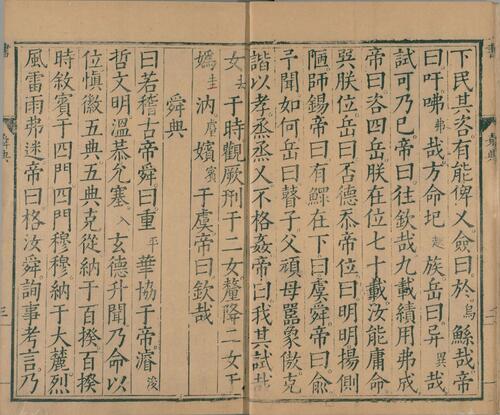 下民其咨有能俾乂僉曰於烏鯀哉帝
曰吁咈弗哉方命圮起族岳曰异異哉
試可乃巳帝曰往欽哉九載績用弗成
帝曰咨四岳朕在位七十載汝能庸命
巽朕位岳曰否德忝帝位曰明明揚側
陋師錫帝曰有鰥在下曰虞舜帝曰俞
予聞如何岳曰瞽子父頑母嚚象傲克
諧以孝烝烝乂不格姦帝曰我其試哉
女去于時觀厥刑于二女釐降二女于
媯圭汭嬪賓于虞帝曰欽哉
舜典
曰若稽古帝舜曰重平華協于帝濬浚
哲文明溫恭允塞入玄德升聞乃命以
位慎徽五典五典克從納于百揆百揆
時敘賓于四門四門穆穆納于大麓烈
風雷雨弗迷帝曰格汝舜詢事考言乃
書
舜典
三